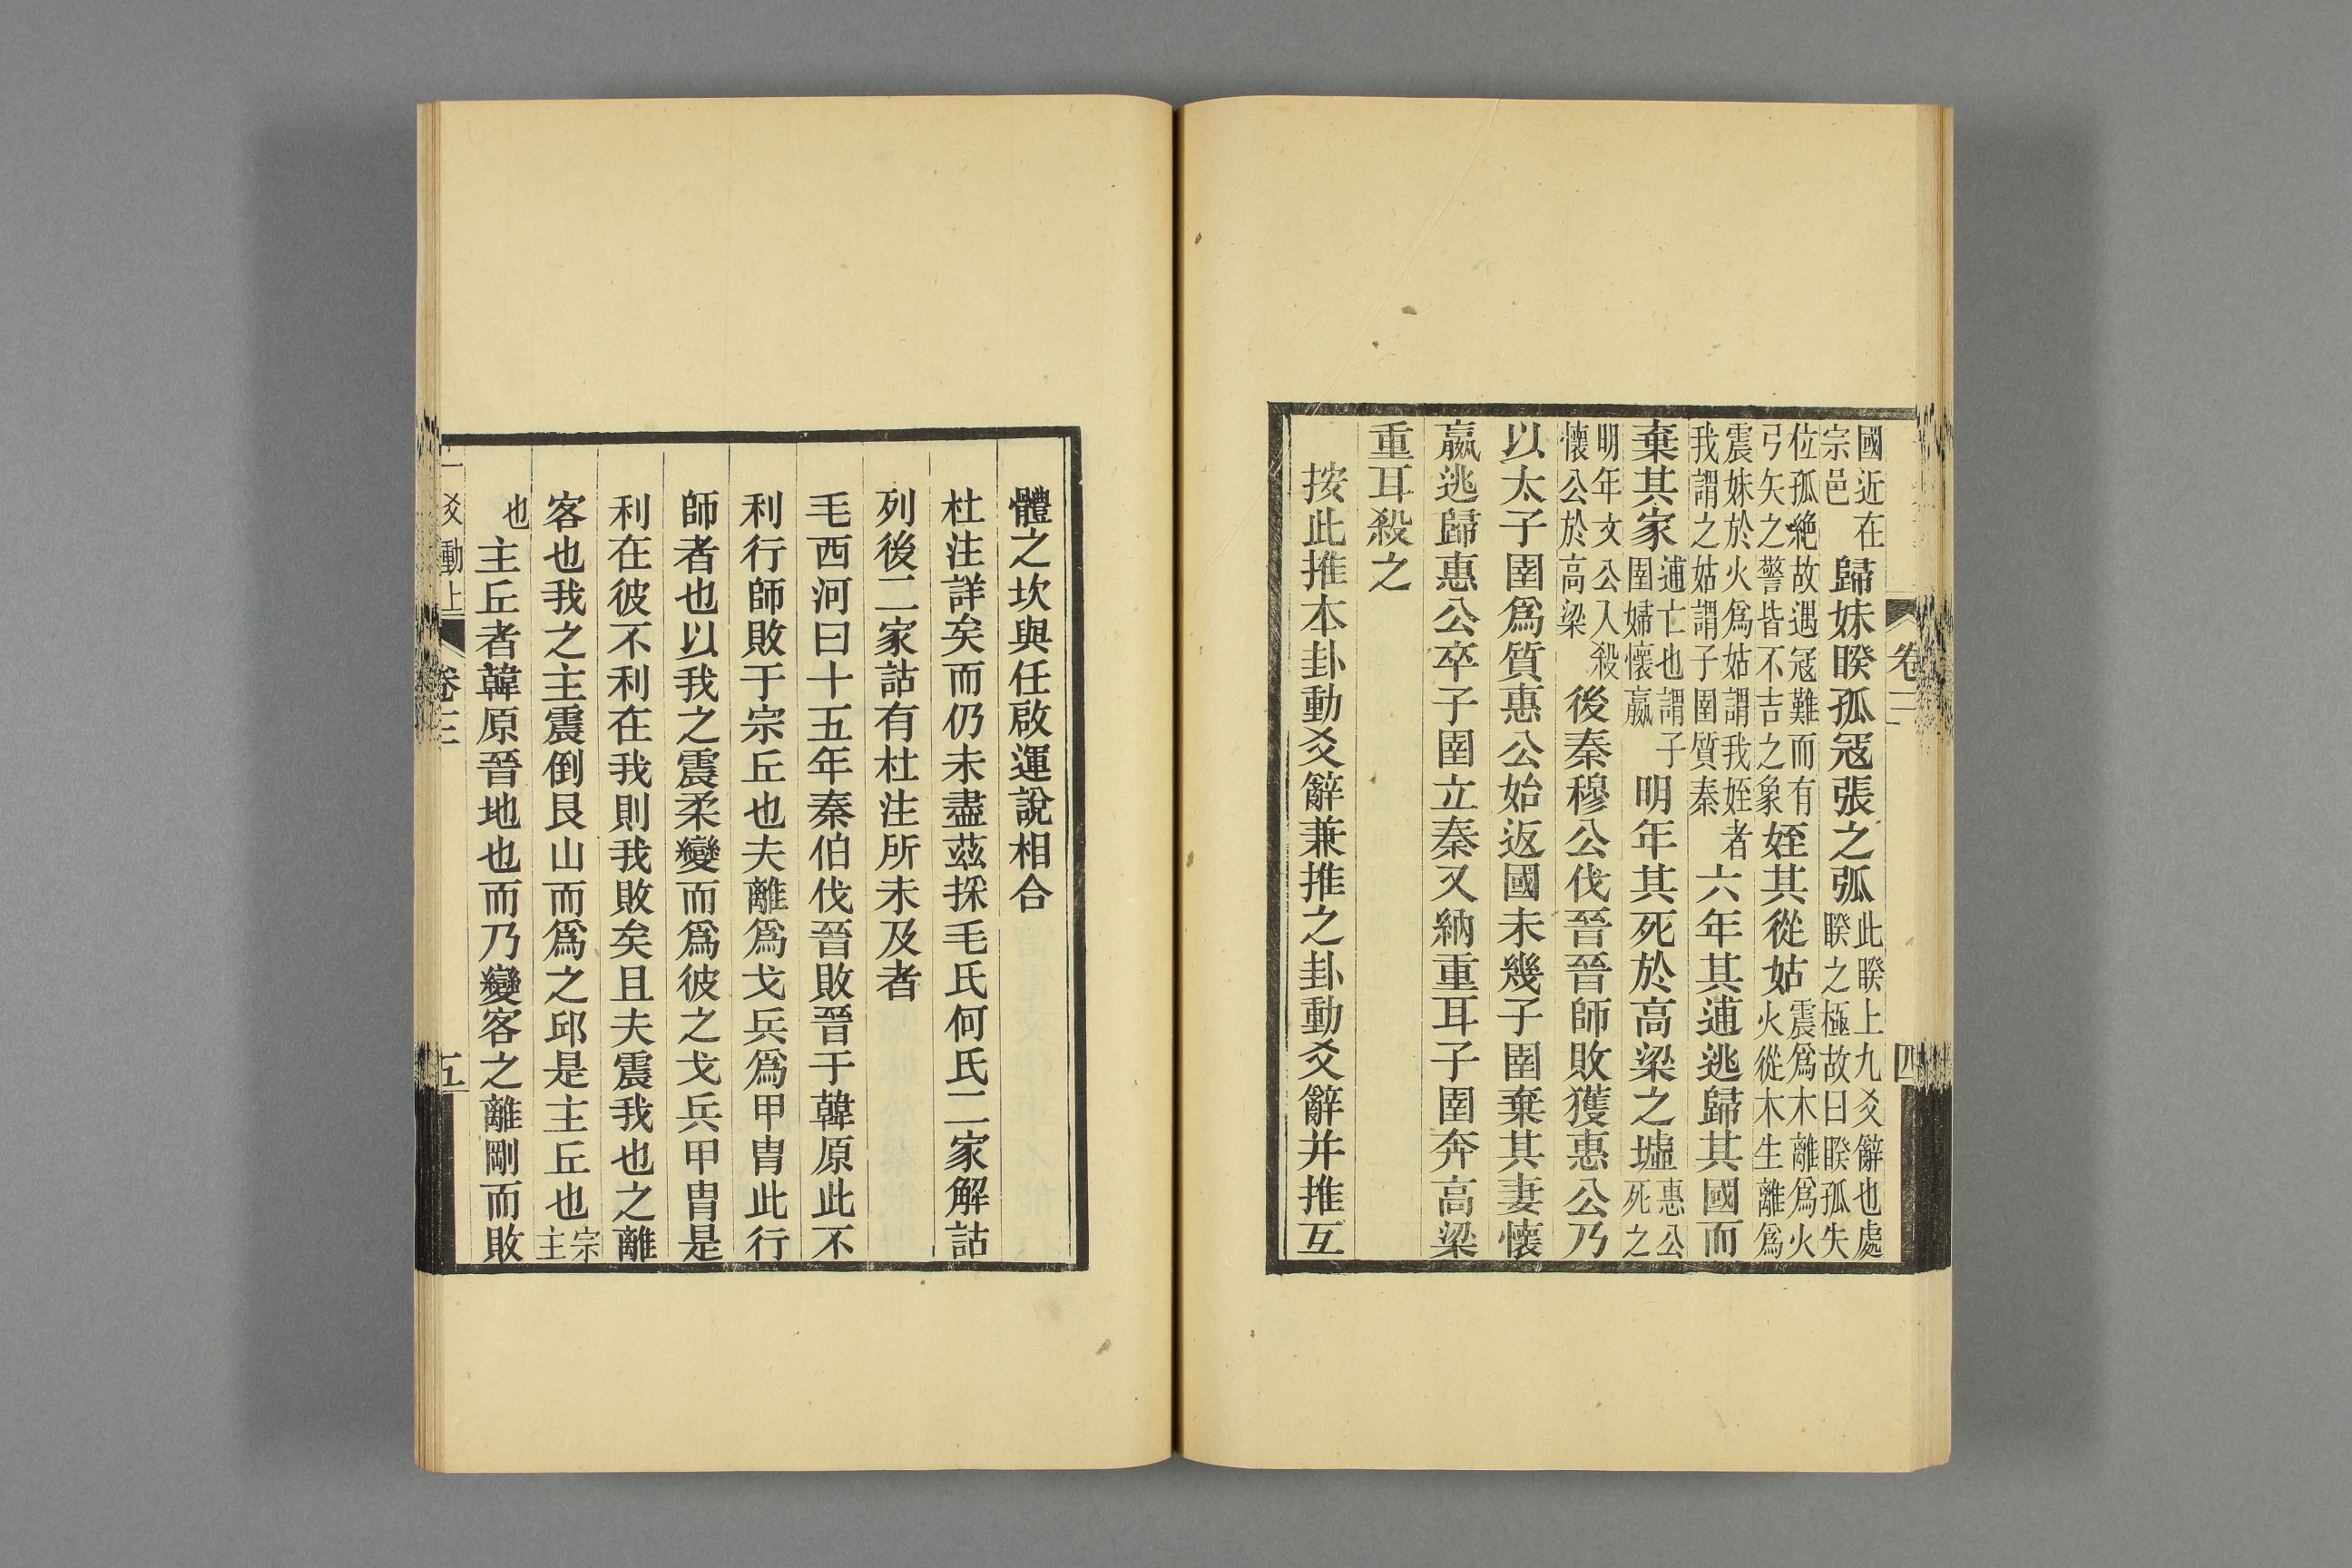 卷三 四
國近在宗邑歸妹睽孤寇張之弧此睽上九爻辭也處睽之極故曰睽孤失
位孤絶故遇寇難而有弓矢之警皆不吉之象姪其從姑震爲木離爲火火從木生離爲
震妹於火爲姑謂我姪者我謂之姑謂子圉質秦六年其逋逃歸其國而
棄其家逋亡也謂子圉婦懷嬴明年其死於高梁之墟惠公死之
明年文公入殺懷公於高梁後秦穆公伐晉晉師敗獲惠公乃
以太子圉爲質惠公始返國未幾子圉棄其妻懷
嬴逃歸惠公卒子圉立秦又納重耳子圉奔高梁
重耳殺之
按此推本卦動爻辭兼推之卦動爻辭并推互
體之坎與任啟運說相合
杜注詳矣而仍未盡茲採毛氏何氏二家解詁
列後二家詁有杜注所未及者
毛西河曰十五年秦伯伐晉敗晉于韓原此不
利行師敗于宗丘也夫離爲戈兵爲甲胄此行
師者也以我之震柔變而爲彼之戈兵甲胄是
利在彼不利在我則我敗矣且夫震我也之離
客也我之主震倒艮山而爲之邱是主丘也宗主
也主丘者韓原晉地也而乃變客之離剛而敗
一爻動上 卷三 五